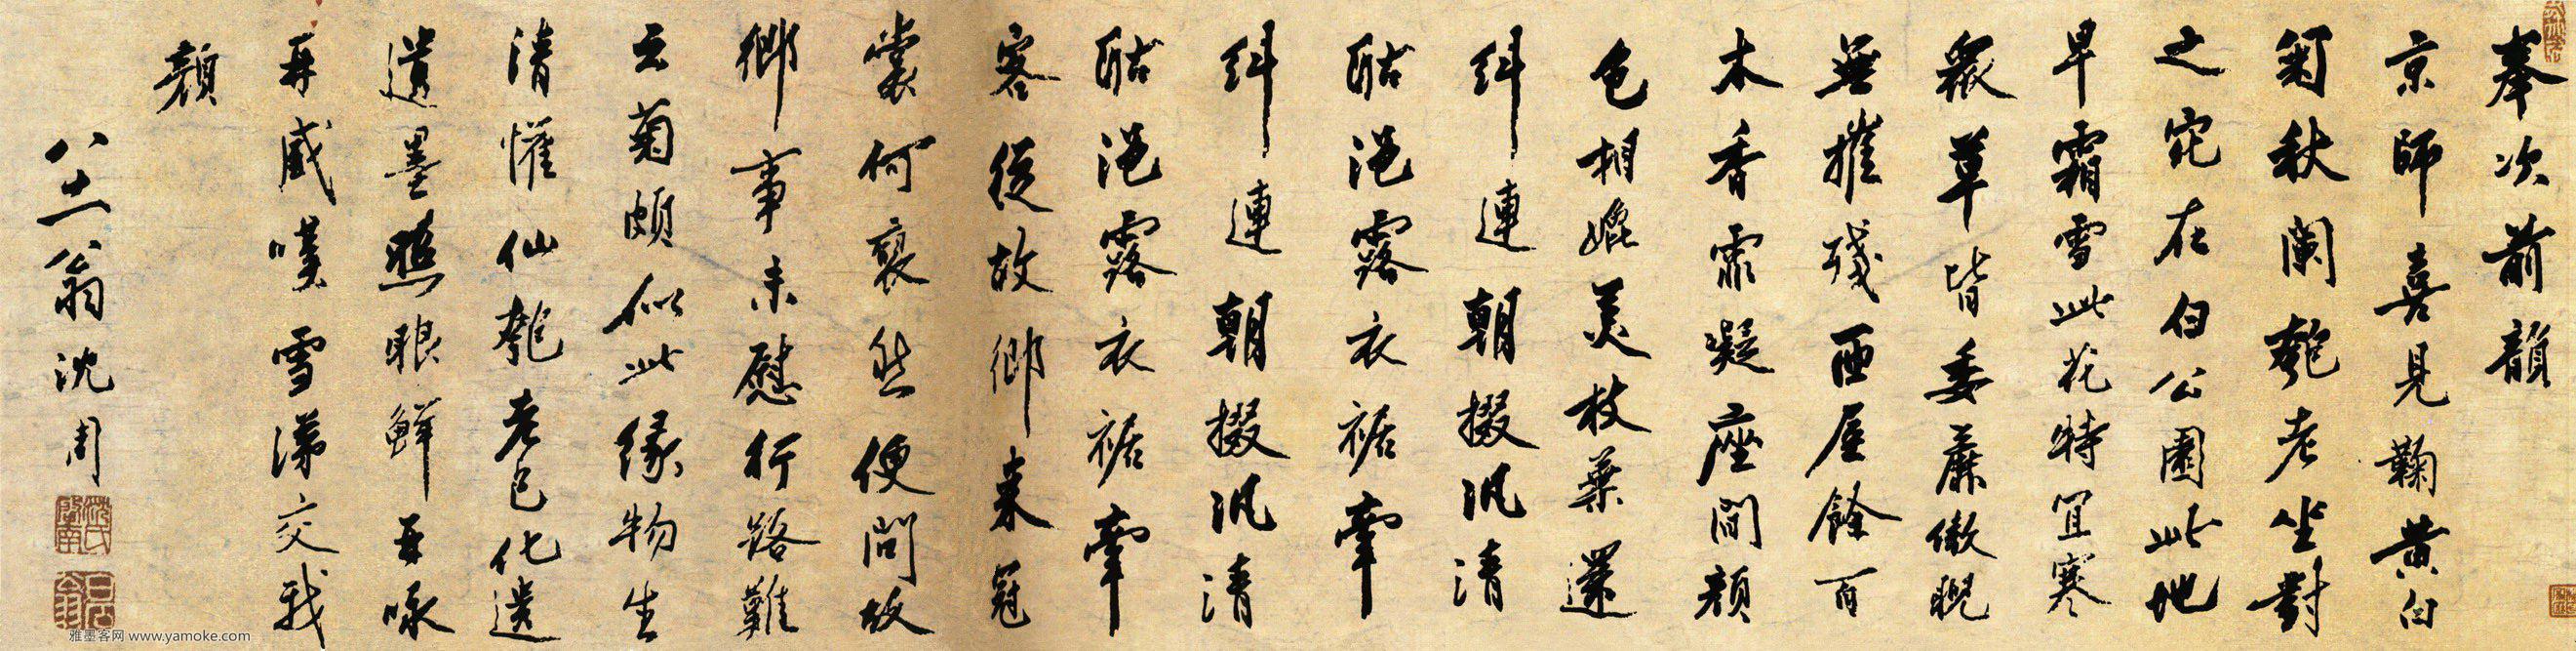 奉次前韻
京師喜見鞠黃白
菊秋闌匏老坐對
之究在白公園此地
早霜雪此花特宜寒
衆草皆委靡傲睨
無摧殘西屋餘百
木香霏凝座間顏
色相媲美枝葉還
糾連朝掇汎清
酤浥露衣裾牽
糾連朝掇汎清
酤浥露衣裾牽
客從故鄉來冠
裳何裒然便問故
鄉事未慰行路難
云菊頗似此緣物生
清懽仙匏老已化遺
遺墨照眼鮮再咏
再感嘆雪涕交我
顏
八十一翁沈周
沈氏啓南
石田翁
雅墨客网 www.yamoke.com